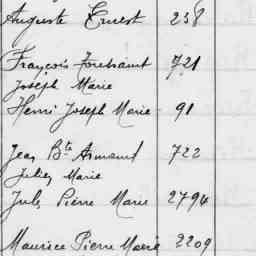 Auguste Ernest 258
François Toussaint 721
Joseph Marie
Henri Joseph Marie 91
Jean Bte Armand 722
Julien Marie
Jules Pierre Marie 2794
Maurice Pierre Marie 2209